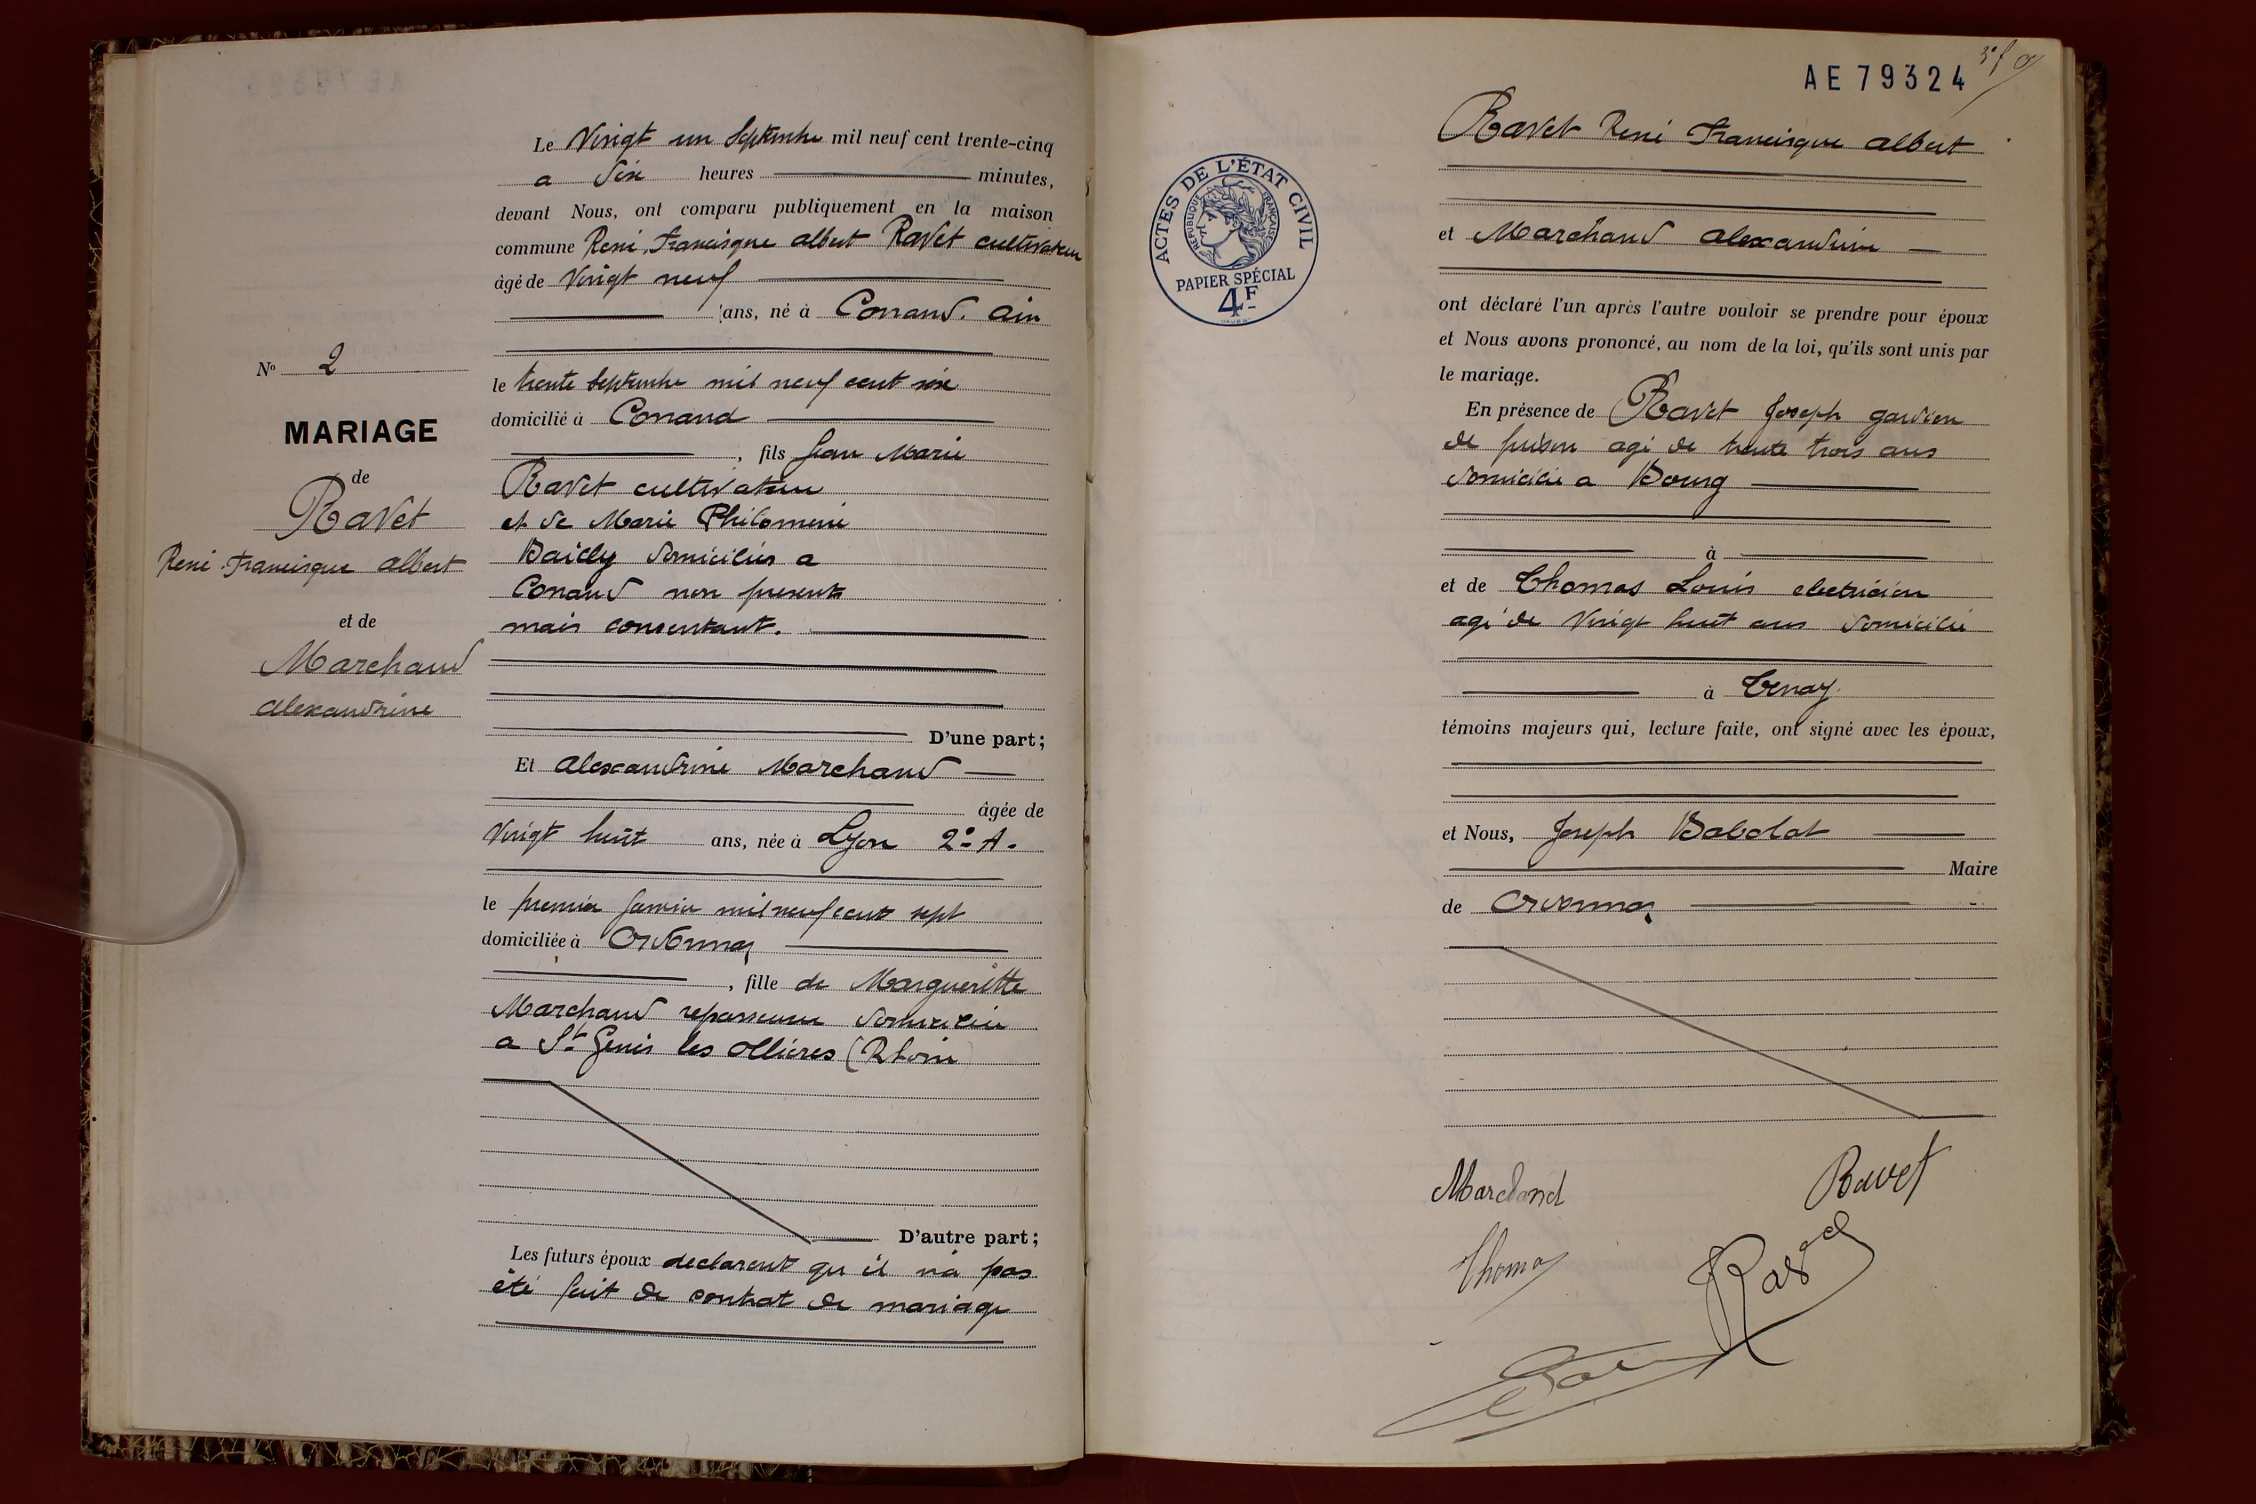 Le Vingt un Septembre mil neuf cent trente-cinq
a Six heures minutes,
devant Nous, ont comparu publiquement en la maison
commune René Francisque albert Ravet cultivateur
âgé de Vingt neuf
ans, né à Conand. ain
le trente Septembre mil neuf cent six
domicilié à Conand
, fils Jean Marie
Ravet cultivateur
et de Marie Philomene
Bailly domiciliés a
Conand non presents
mais consentant.
D'une part;
Et alexandrine Marchand
âgée de
Vingt huit ans, née à Lyon 2e A.
le premier Janvier mil neuf cent sept
domiciliée à
, fille de Margueritte
Marchand repasseuse domiciliée
a St Genis les Ollières (Rhône
D'autre part;
Les futurs époux declarent qu il n'a pas
été fait de contrat de mariage
No 2
MARIAGE
de
Ravet
René Francisque albert
et de
Marchand
alexandrine
AE 79324
Ravet René Francisque albert
et Marchand alexandrine
ont déclaré l'un après l'autre vouloir se prendre pour époux
et Nous avons prononcé, au nom de la loi, qu'ils sont unis par
le mariage.
En présence de Ravet Joseph gardien
de prison agé de trente trois ans
domicilié a Bourg
à
et de Thomas Louis electricien
agé de Vingt huit ans domicilié
à Tenay
témoins majeurs qui, lecture faite, ont signé avec les époux,
et Nous, Joseph Babolat
Maire
de
Marchand
Ravet
Thomas
Ravet
ACTES DE L'ÉTAT CIVIL
RÉPUBLIQUE FRANÇAISE
PAPIER SPÉCIAL
4F